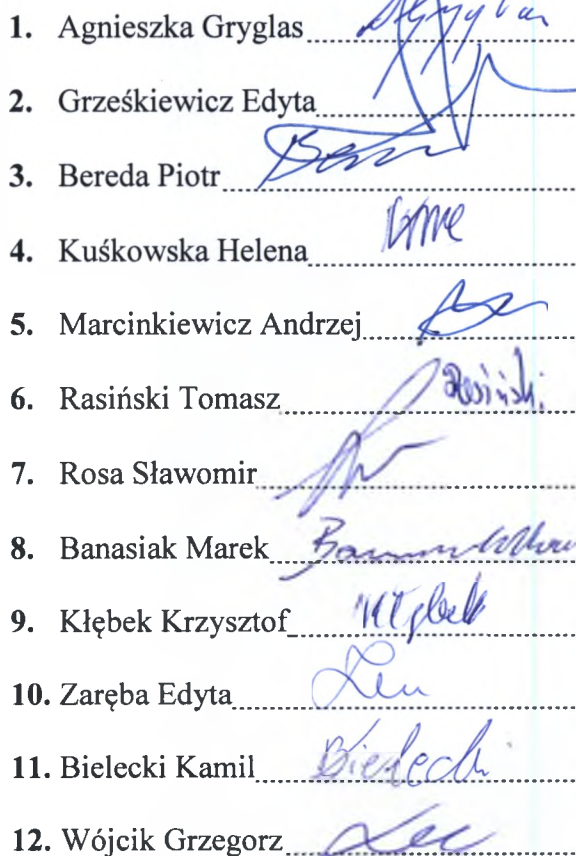 1. Agnieszka Gryglas
2. Grześkiewicz Edyta
3. Bereda Piotr
4. Kuśkowska Helena
5. Marcinkiewicz Andrzej
6. Rasiński Tomasz Rasiński
7. Rosa Sławomir
8. Banasiak Marek
9. Kłębek Krzysztof Kłębek
10. Zaręba Edyta
11. Bielecki Kamil Bielecki
12. Wójcik Grzegorz